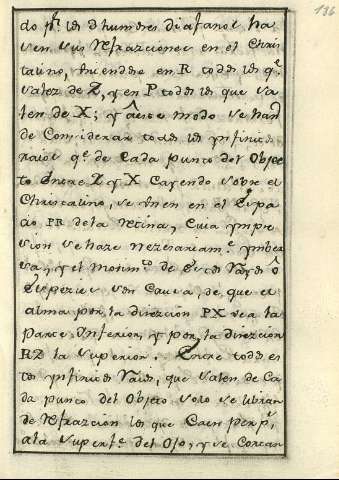 136
do pr. los dos humores diafanos ha
sen sus refraziones en el Chris
talino, enciende en R todos los qe.
salez de Z, y en P todos los que sa
len de X; y a este modo se han
de Considerar todos los ynfinitos
raios qe. de Cada punto del Obje
to entre Z y X Cayendo sobre el
Christalino, se unen en el Espa
cio PR de la retina, Cuia ympre
sion se haze nezesariamte. ymber
sa, y el Motimto. de estos
Espezies son Causa, de que el
alma por la direzion PX vea la
parte Inferior, y por la direzion
RZ la superior. Entre todos es
tos ynfinitos raios, que salen de Ca
da punto del Objeto solo se libran
de refrazion los que Caen perpr.
a la superfe. del Ojo, y se Cortan